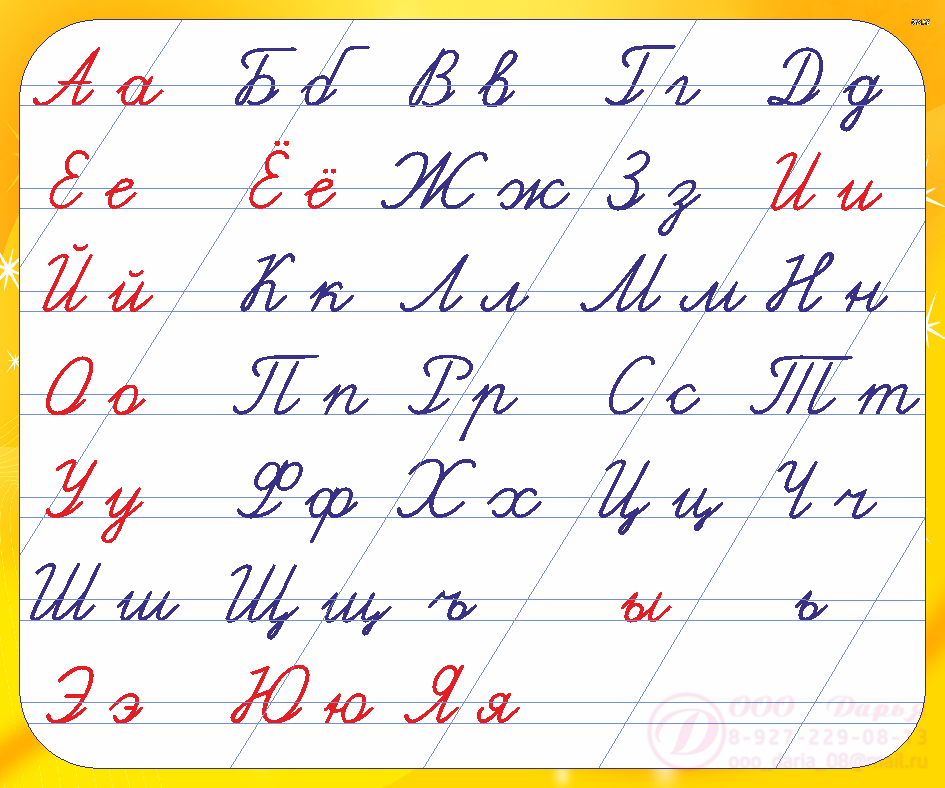 А а Б б В в Г г Д д
Е е Ё ё Ж ж З з И и
Й й К к Л л М м Н н
О о П п Р р С с Т т
У у Ф ф Х х Ц ц Ч ч
Ш ш Щ щ ъ ы ь
Э э Ю ю Я я
ООО Дарья
8-927-229-08-13
ooo_daria_08@mail.ru